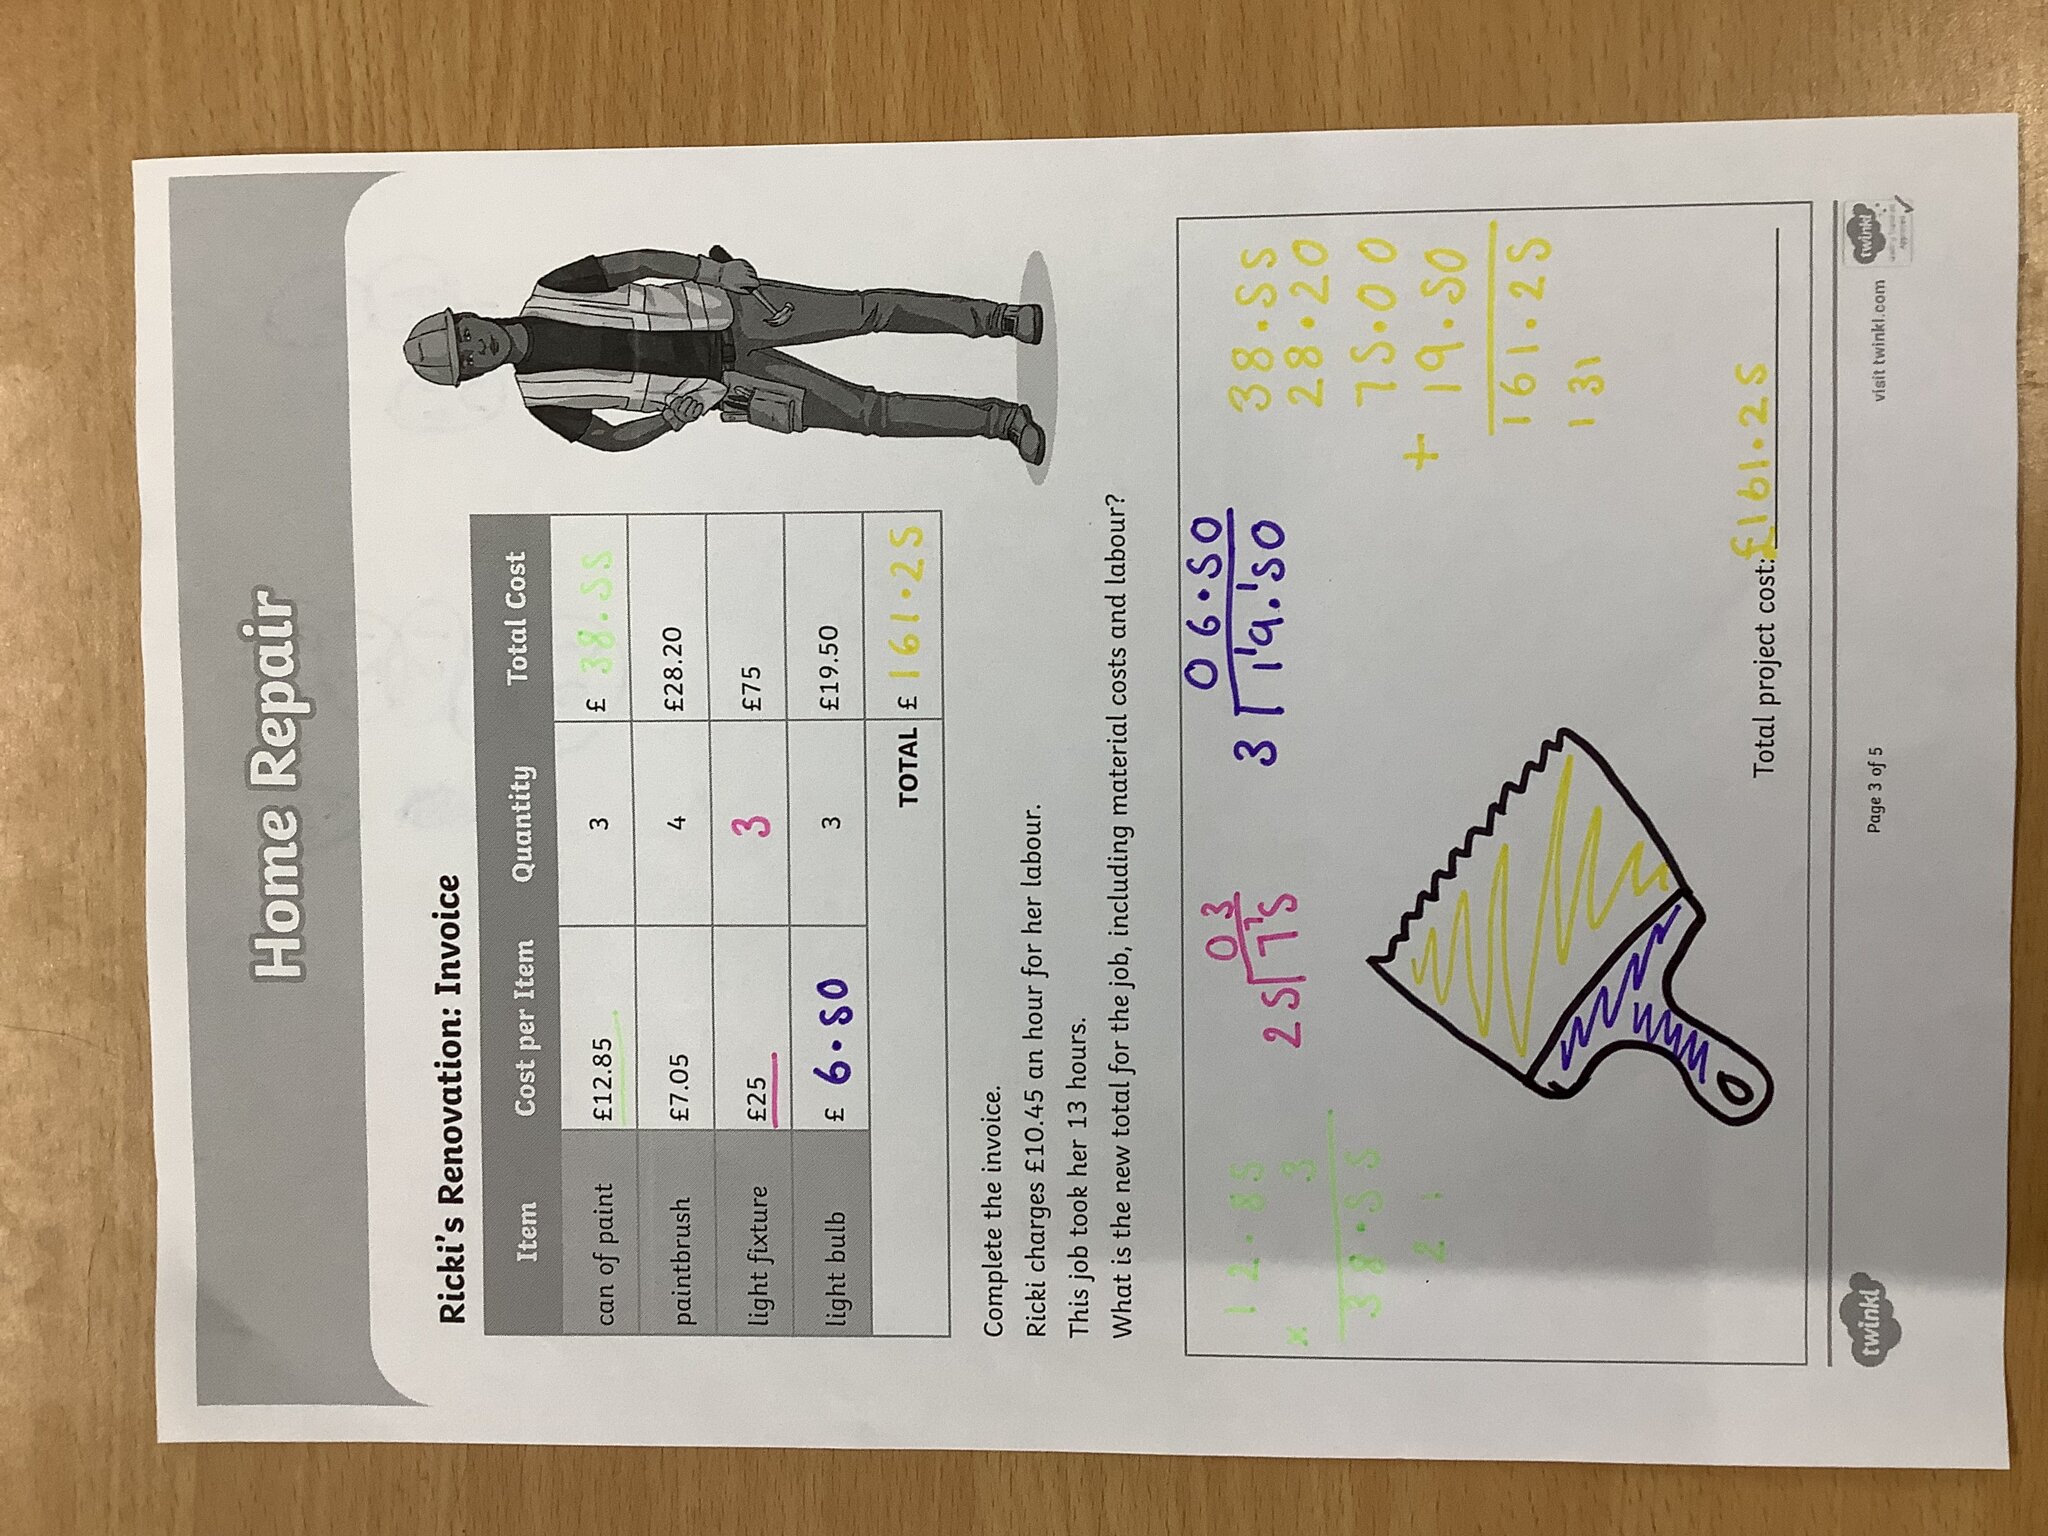 Home Repair
Ricki's Renovation: Invoice
Item Cost per Item Quantity Total Cost
can of paint £12.85 3 £ 38.55
paintbrush £7.05 4 £28.20
light fixture £25 3 £75
light bulb £ 6.50 3 £19.50
TOTAL £ 161.25
Complete the invoice.
Ricki charges £10.45 an hour for her labour.
This job took her 13 hours.
What is the new total for the job, including material costs and labour?
12.85
x 3
38.55
2 1
03
25 7 15
06.50
3 1 19.150
38.55
28.20
75.00
+ 19.50
161.25
1 31
Total project cost: £161.25
twinkl
Page 3 of 5
visit twinkl.com
twinkl